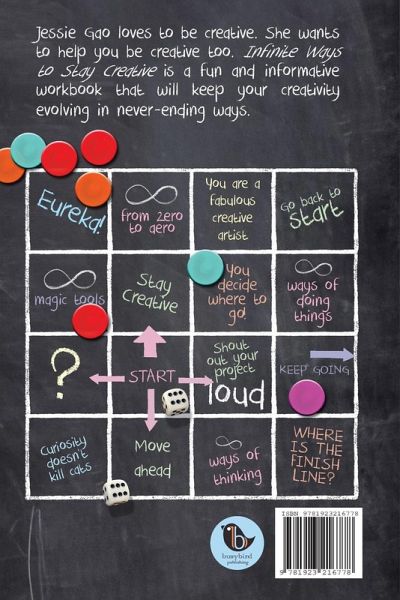 Jessie Gao loves to be creative. She wants
to help you be creative too. Infinite Ways
to Stay Creative is a fun and informative
workbook that will keep your creativity
evolving in never-ending ways.
Eureka!
from zero
to aero
You are a
fabulous
creative
artist
Go back to
start
magic tools
Stay
Creative
You
decide
where to
go!
ways of
doing
things
?
START
Shout
out your
project
loud
KEEP GOING
Curiosity
doesn't
kill cats
Move
ahead
ways of
thinking
WHERE
IS THE
FINISH
LINE?
busybird
publishing
ISBN 9781923216778
9 781923 216778